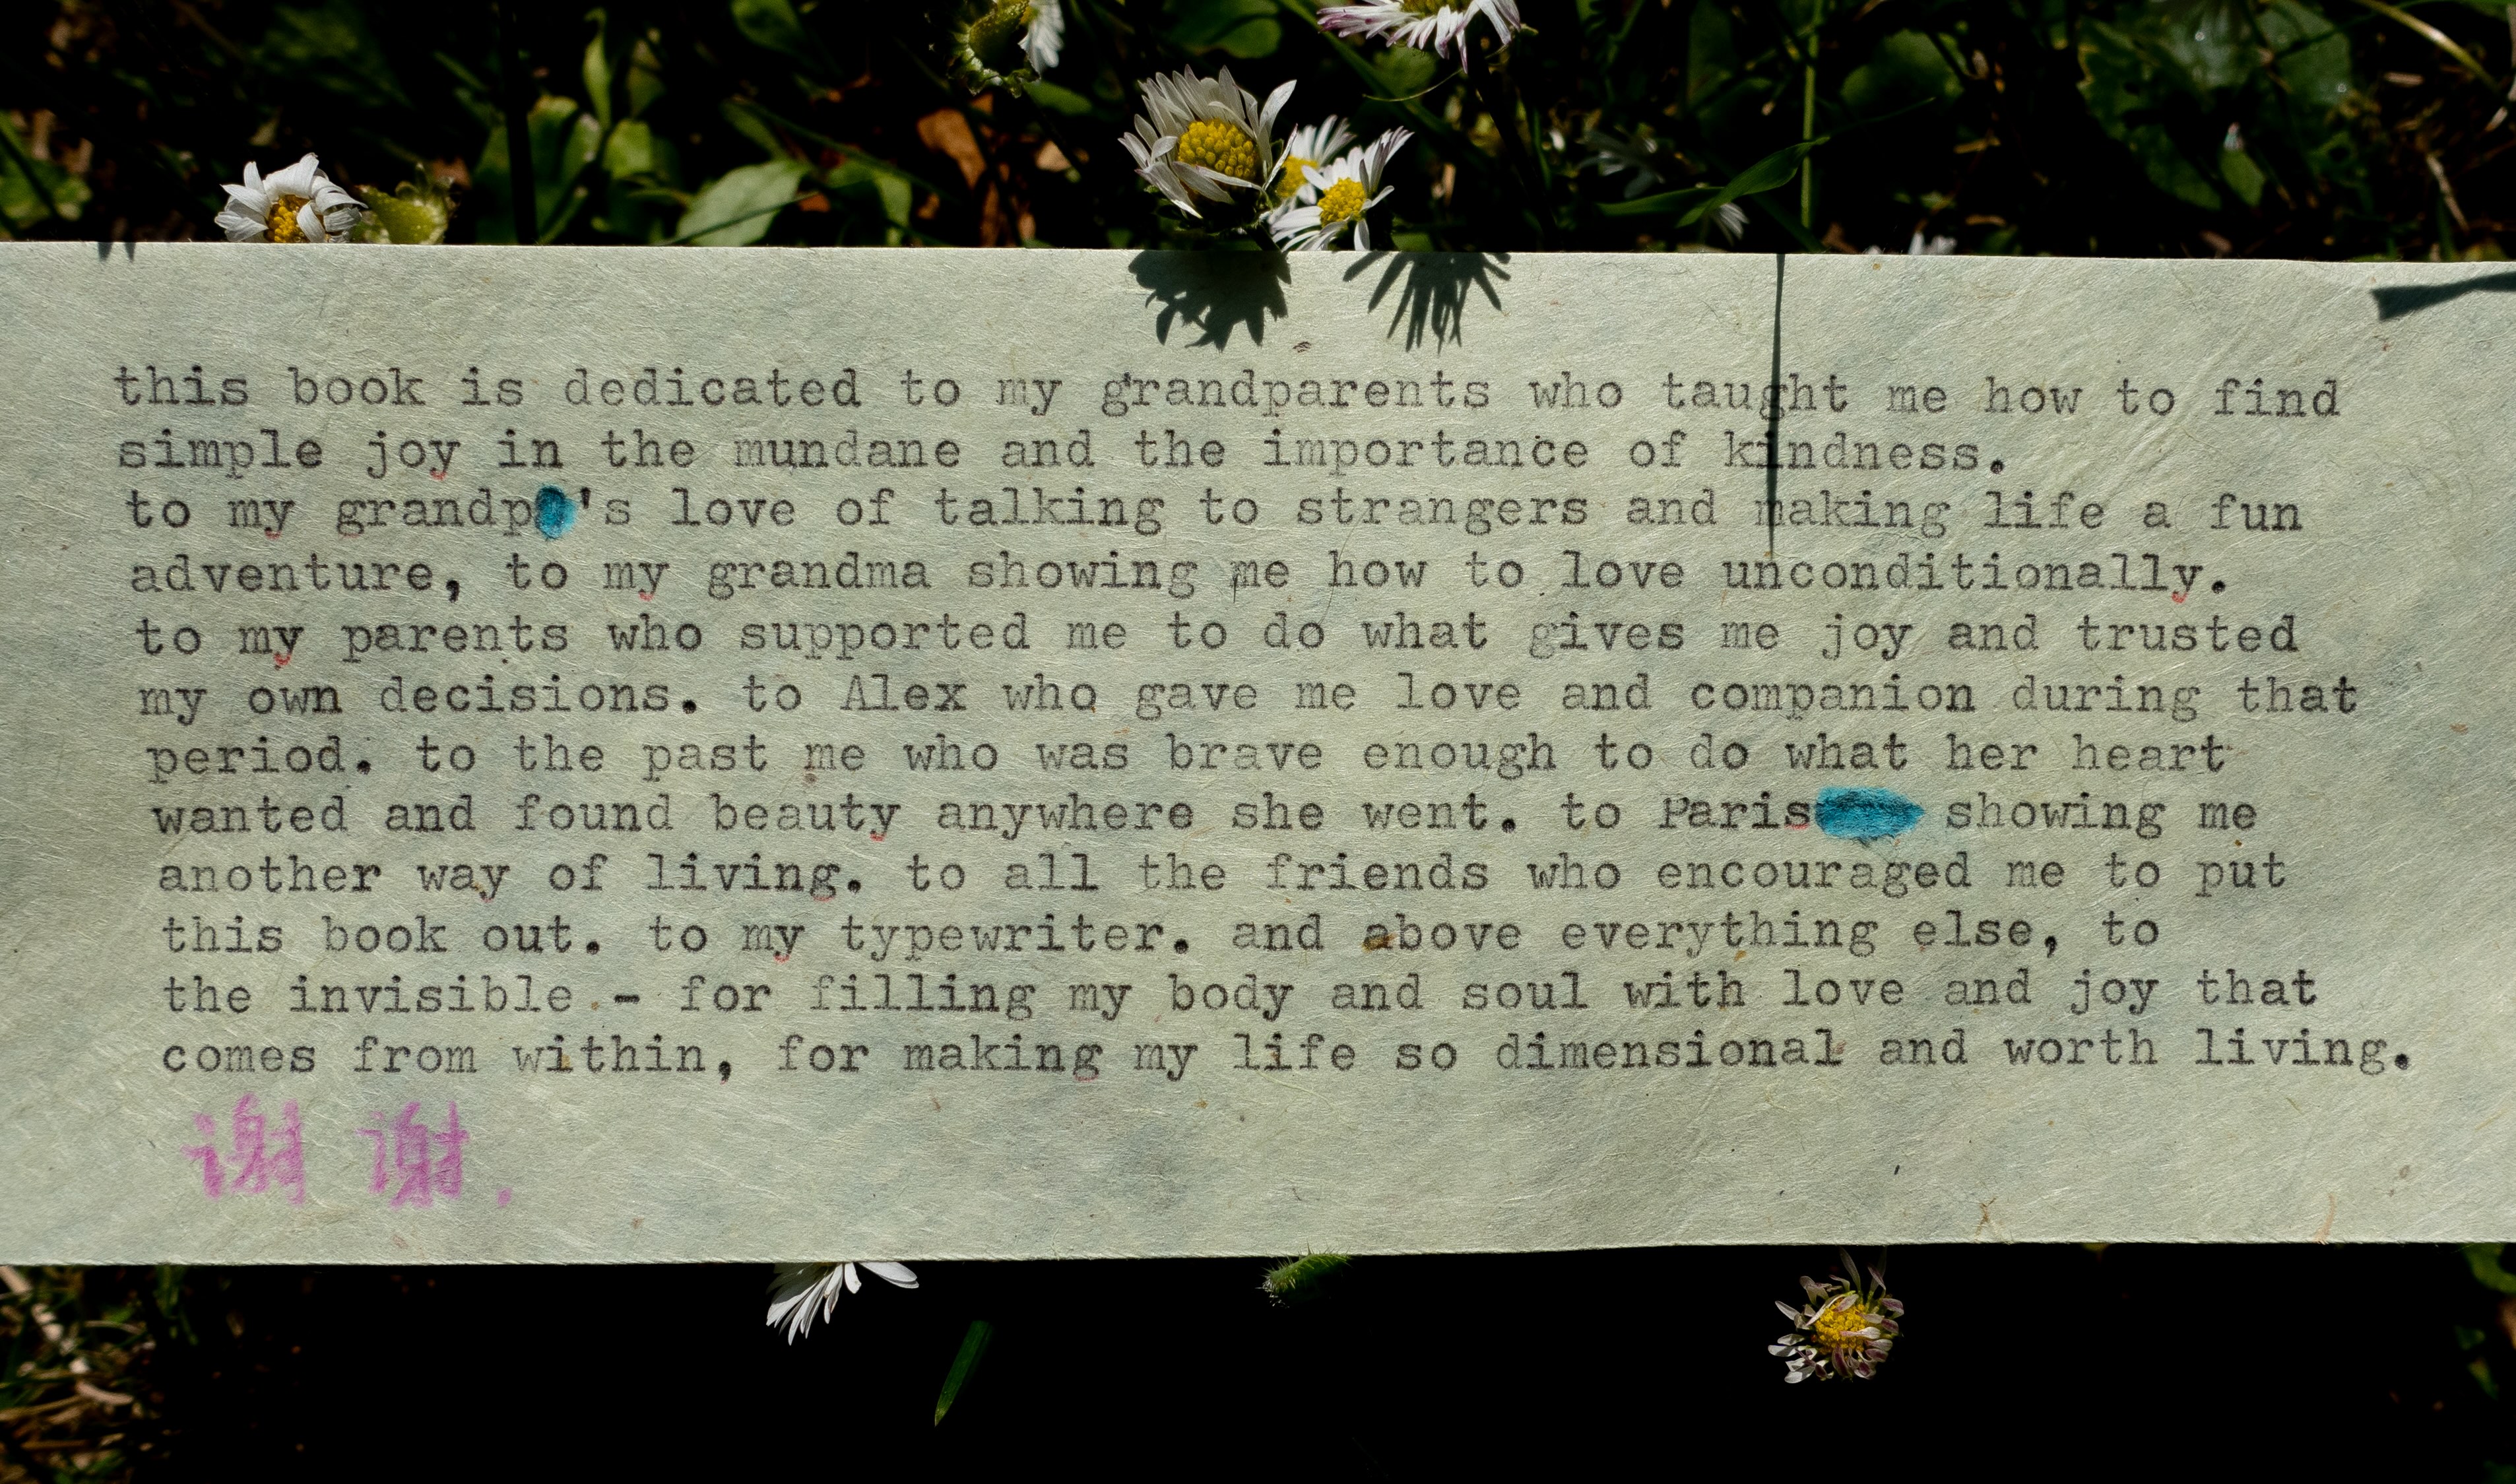 this book is dedicated to my grandparents who taught me how to find
simple joy in the mundane and the importance of kindness.
to my love of talking to strangers and making life a fun
adventure, to my grandma showing me how to love unconditionally.
to my parents who supported me to do what gives me joy and trusted
my own decisions. to Alex who gave me love and companion during that
period. to the past me who was brave enough to do what her heart
wanted and found beauty anywhere she went. to Paris showing me
another way of living. to all the friends who encouraged me to put
this book out. to my typewriter. and above everything else, to
the invisible - for filling my body and soul with love and joy that
comes from within, for making my life so dimensional and worth living.
谢 谢.